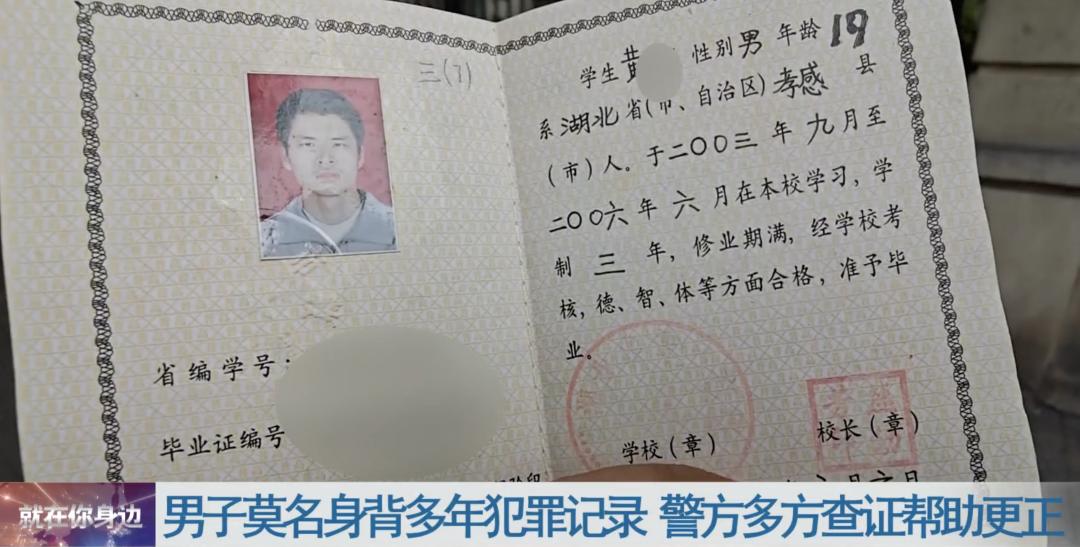 三(7)
省编学号:
毕业证编号
学生黄 性别男 年龄19
系湖北省(市、自治区)孝感县
(市)人。于二〇〇三年九月至
二〇〇六年六月在本校学习,学
制三年,修业期满,经学校考
核,德、智、体等方面合格,准予毕
业。
学校(章)
校长(章)
就在你身边
男子莫名身背多年犯罪记录 警方多方查证帮助更正